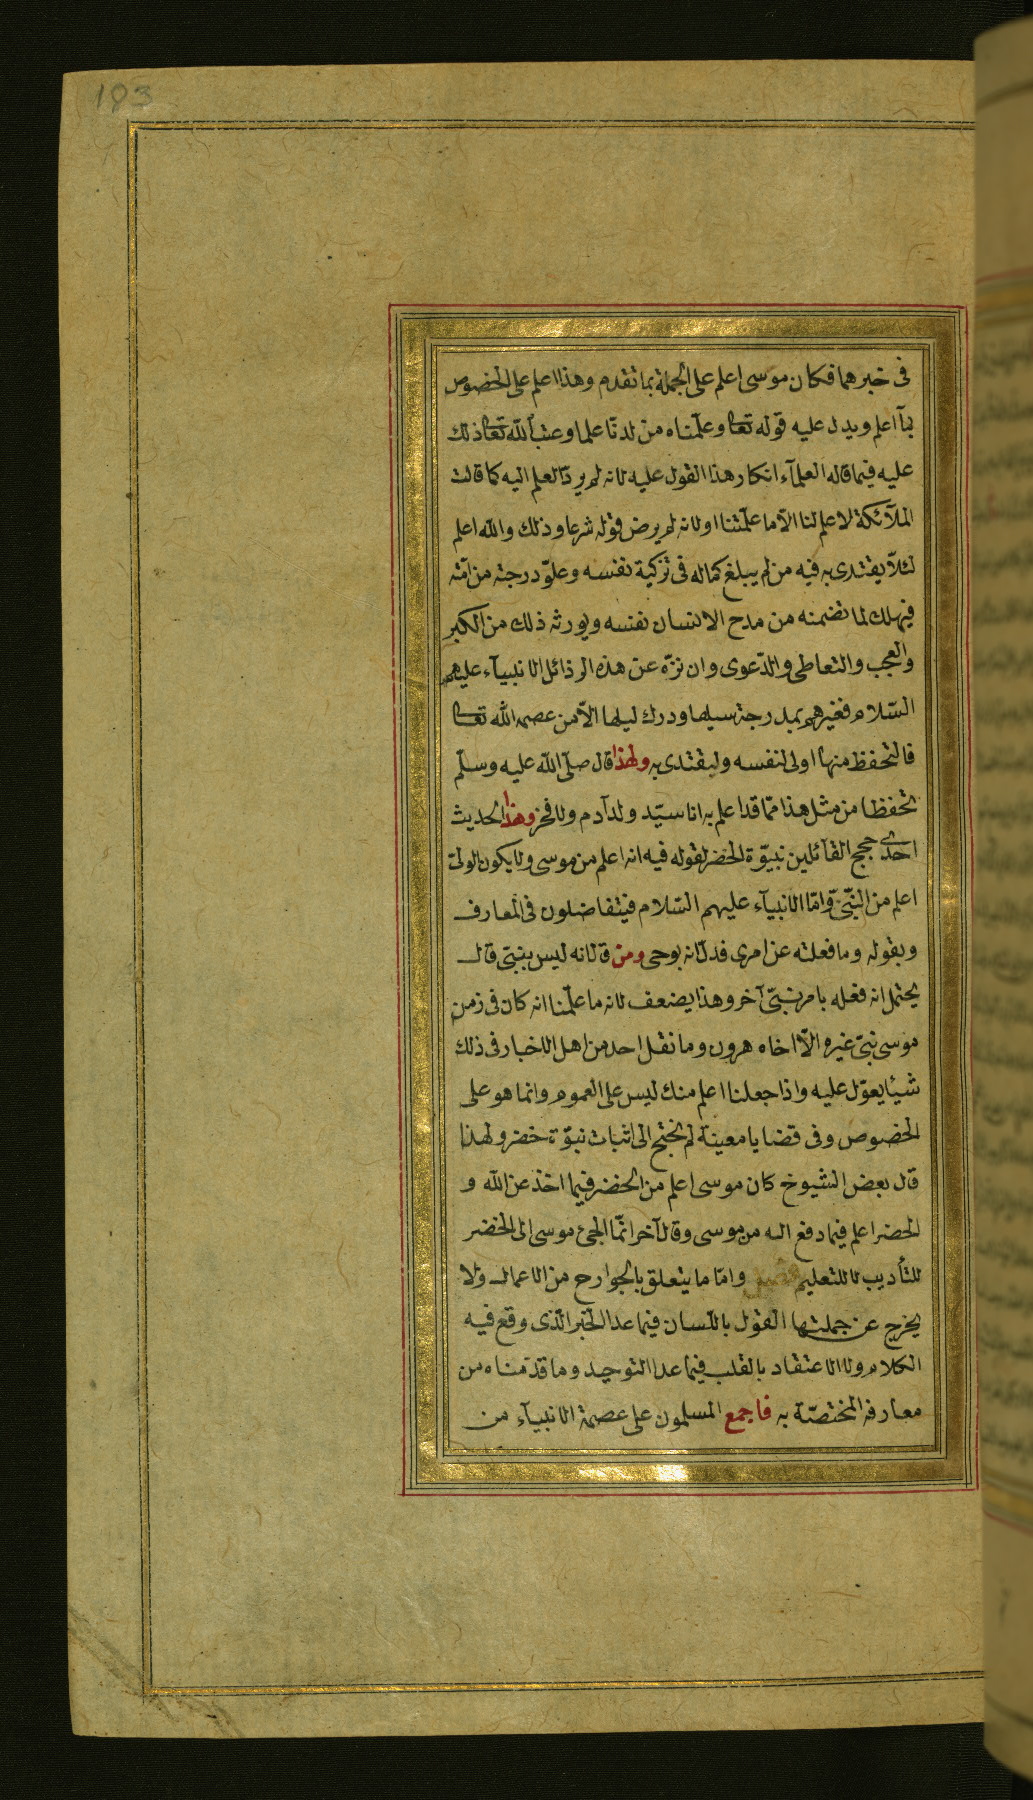 193
فى خبرهما فكان موسى اعلم على الجملة بما تقدم وهذا اعلم على الخصوص
بما اعلم ويدل عليه قوله تعا وعلّمناه من لدنّا علما وعتب الله تعا ذلك
عليه فيما قاله العلمآء انكار هذا القول عليه لانه لم يردّ العلم اليه كما قالت
الملآئكة لا علم لنا الّا ما علّمتنا او لانه لم يرض قوله شرعا وذلك والله اعلم
لئلّا يقتدى به فيه من لم يبلغ كماله فى تزكية نفسه وعلوّ درجته من امّته
فيهلك لما تضمنه من مدح الانسان نفسه ويورثه ذلك من الكبر
والعجب والتعاطى والدّعوى وان نزّه عن هذه الرذائل الانبيآء عليهم
السّلام فغيرهم بمدرجة سيلها ودرك ليلها الّا من عصمه الله تعا
فالتحفظ منها اولى لنفسه وليقتدى به ولهذا قال صلّى الله عليه وسلّم
تحفظا من مثل هذا ممّا قد اعلم به انا سيّد ولد آدم ولا فخر وهذا الحديث
احدى حجج القآئلين بنبوّة الخضر لقوله فيه انه اعلم من موسى ولا يكون الولىّ
اعلم من النبّى وامّا الانبيآء عليهم السّلام فيتفاضلون فى المعارف
وبقوله وما فعلته عن امرى فدلّ انه بوحى ومن قال انه ليس بنبّى قال
يحتمل انه فعله بامر نبّى آخر وهذا يضعف لانه ما علّمنا انه كان فى زمن
موسى نبّى غيره الّا اخاه هرون وما نقل احد من اهل الاخبار فى ذلك
شيئا يعوّل عليه واذا جعلنا اعلم منك ليس على العموم وانما هو على
الخصوص وفى قضايا معينة لم يحتج الى اثبات نبوّة خضر ولهذا
قال بعض الشيوخ كان موسى اعلم من الخضر فيما اخذ عن الله و
الخضر اعلم فيما دفع اليه من موسى وقال آخر انّما الجئ موسى الى الخضر
للتأديب لا للتعليم وامّا ما يتعلق بالجوارح من الاعمال ولا
يخرج عن جملتها القول باللّسان فيما عدا الخبر الّذى وقع فيه
الكلام ولا الاعتقاد بالقلب فيما عدا التوحيد وما قدّمناه من
معارفه المختصّة به فاجمع المسلمون على عصمة الانبيآء من